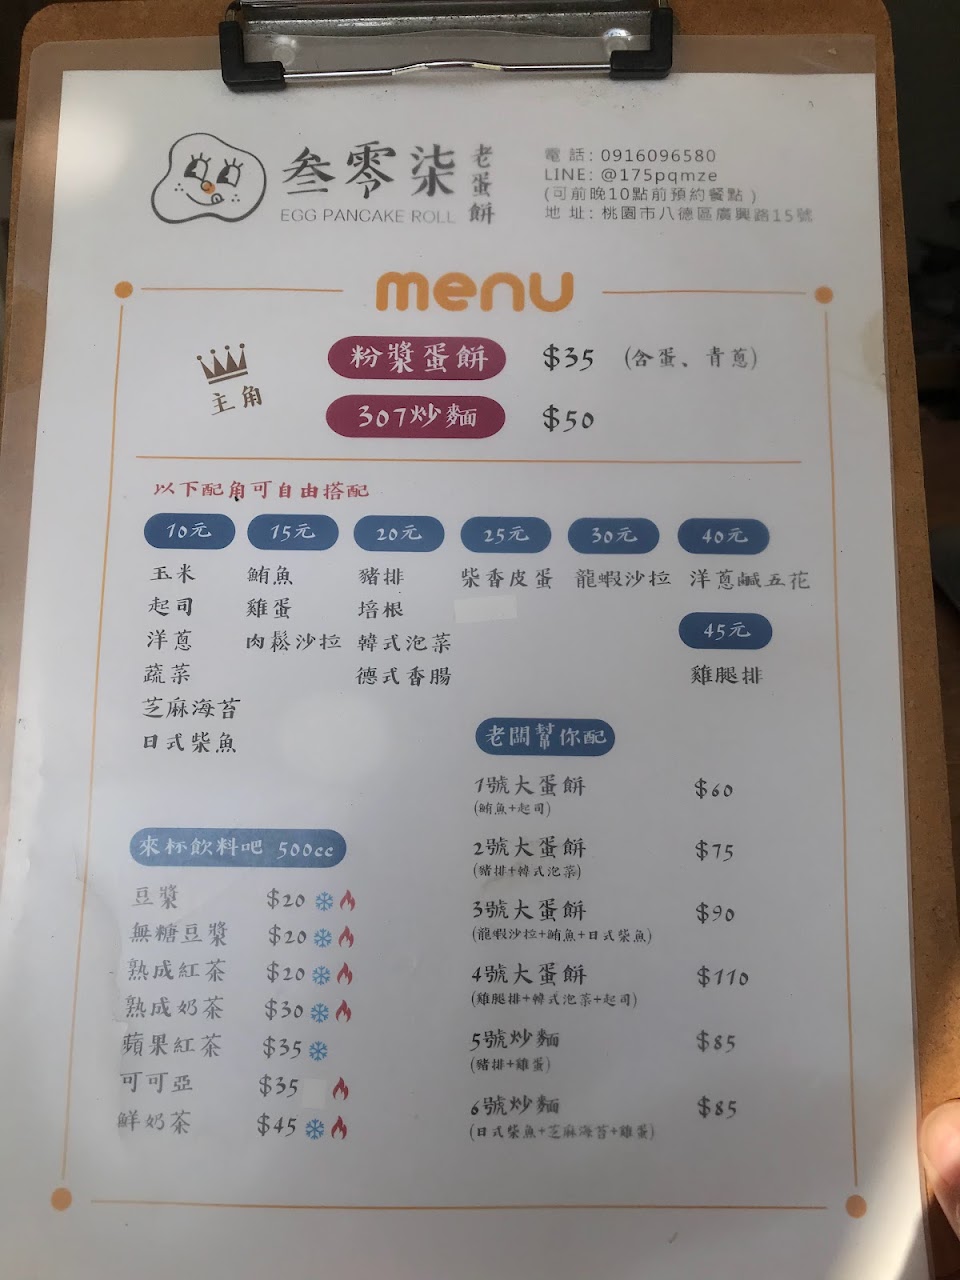 叁零柒 老蛋餅
EGG PANCAKE ROLL
電話: 0916096580
LINE: @175pqmze
(可前晚10點前預約餐點)
地址: 桃園市八德區廣興路15號
menu
主角
粉漿蛋餅 $35 (含蛋、青蔥)
307炒麵 $50
以下配角可自由搭配
10元
玉米
起司
洋蔥
蔬菜
芝麻海苔
日式柴魚
15元
鮪魚
雞蛋
肉鬆沙拉
20元
豬排
培根
韓式泡菜
德式香腸
25元
柴香皮蛋
30元
龍蝦沙拉
40元
洋蔥鹹五花
45元
雞腿排
來杯飲料吧 500cc
豆漿 $20
無糖豆漿 $20
熟成紅茶 $20
熟成奶茶 $30
蘋果紅茶 $35
可可亞 $35
鮮奶茶 $45
老闆幫你配
1號大蛋餅 $60
(鮪魚+起司)
2號大蛋餅 $75
(豬排+韓式泡菜)
3號大蛋餅 $90
(龍蝦沙拉+鮪魚+日式柴魚)
4號大蛋餅 $110
(雞腿排+韓式泡菜+起司)
5號炒麵 $85
(豬排+雞蛋)
6號炒麵 $85
(日式柴魚+芝麻海苔+雞蛋)